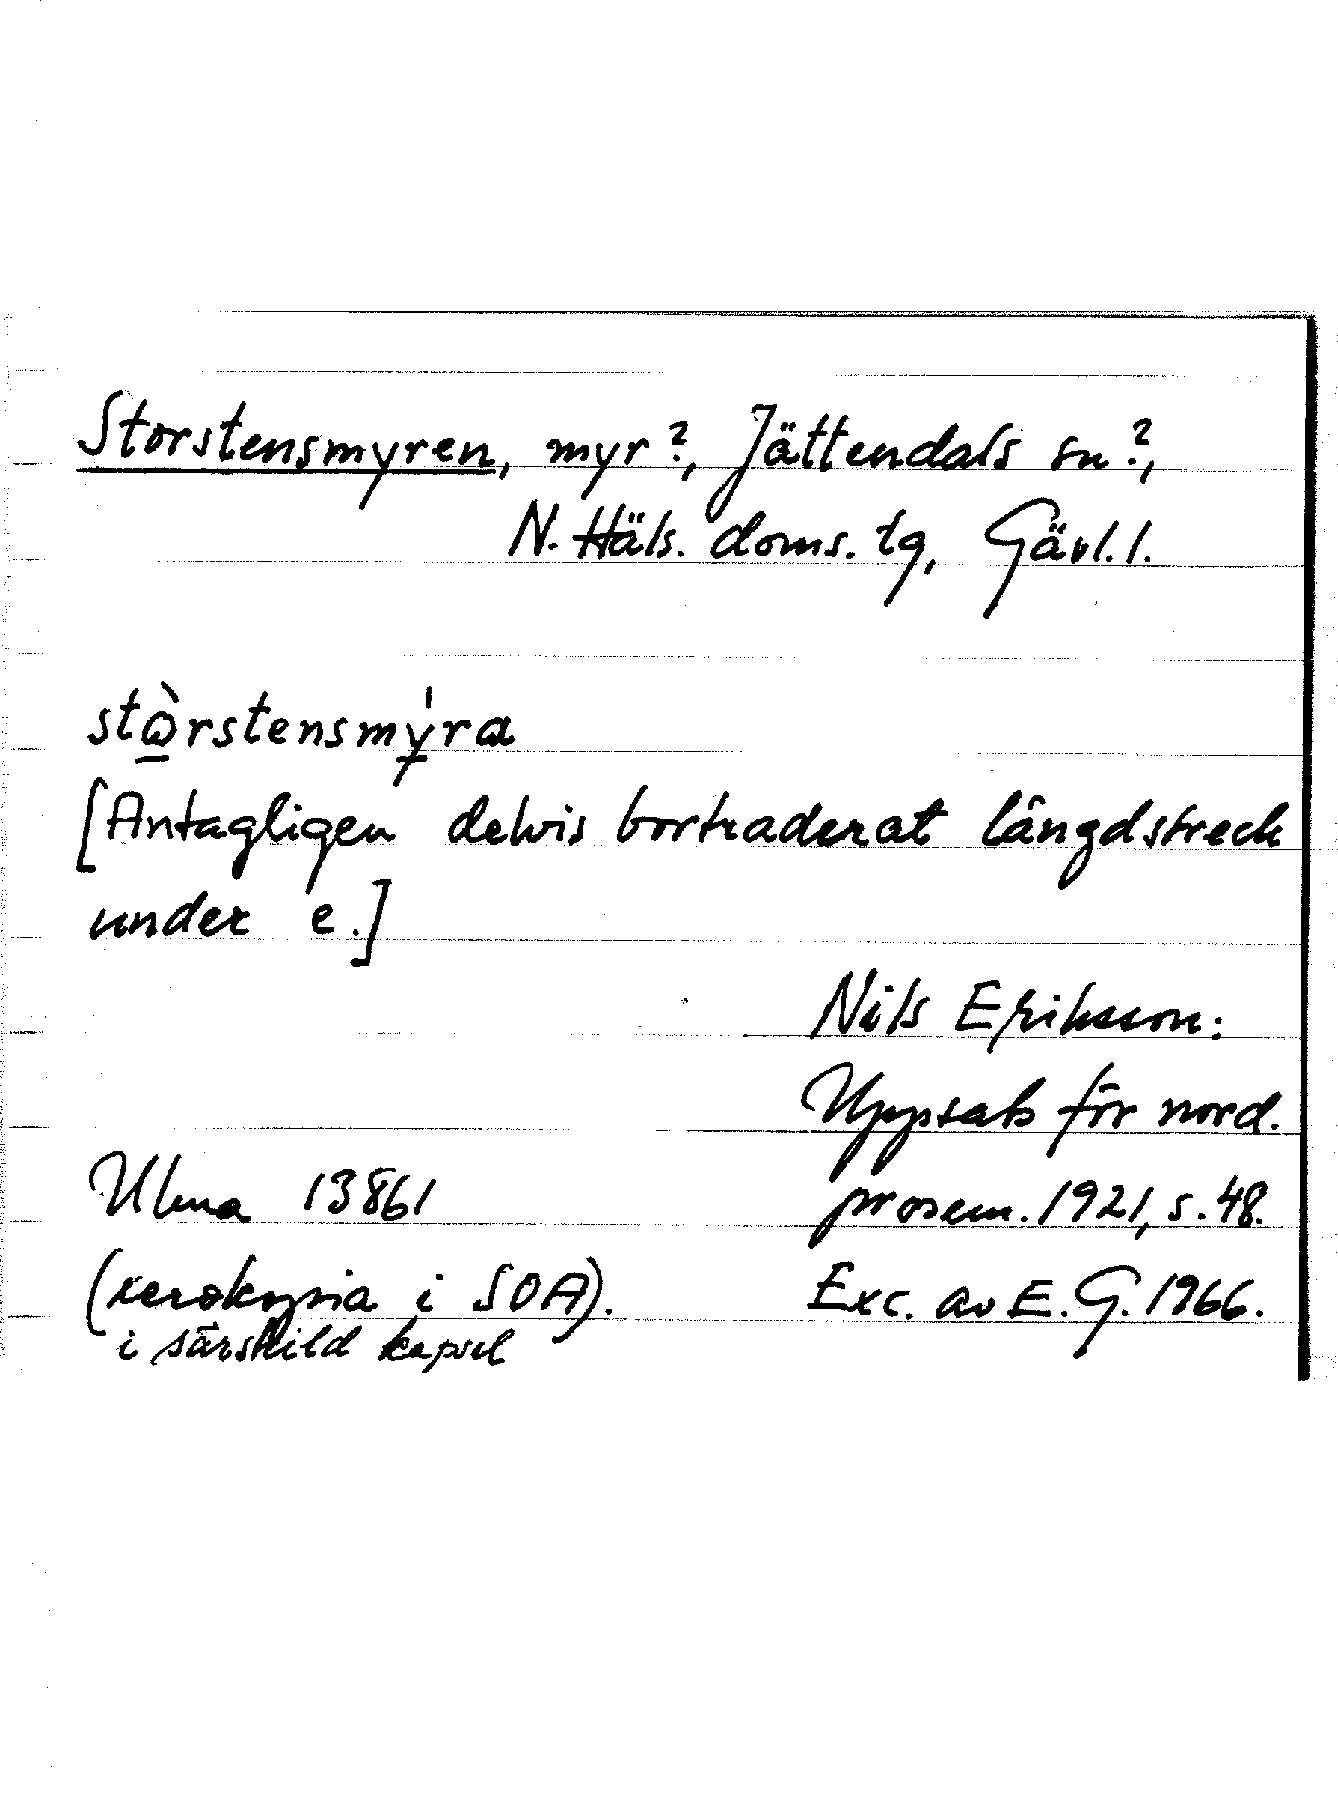 Storstensmyren, myr?, Jättendals sn?,
N. Häls. doms. tg, Gävl. l.
stɷ̠̀rstensmy̠̍ra
[Antagligen delvis bortraderat längdstreck
under e.]
Nils Eriksson:
Uppsats för nord.
Ulma 13861
prosem. 1921, s. 48.
(xerokopia i SOA).
Exc. av E. G. 1966.
i särskild kapsel